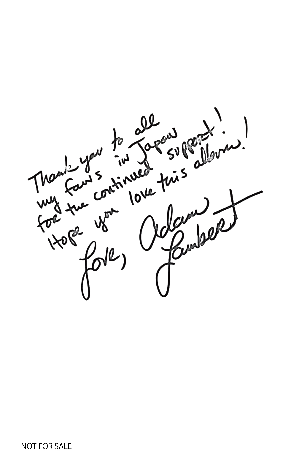 Thank you to all
my fans in Japan
for the continued support!
Hope you love this album!
Love, Adam
Lambert
NOT FOR SALE